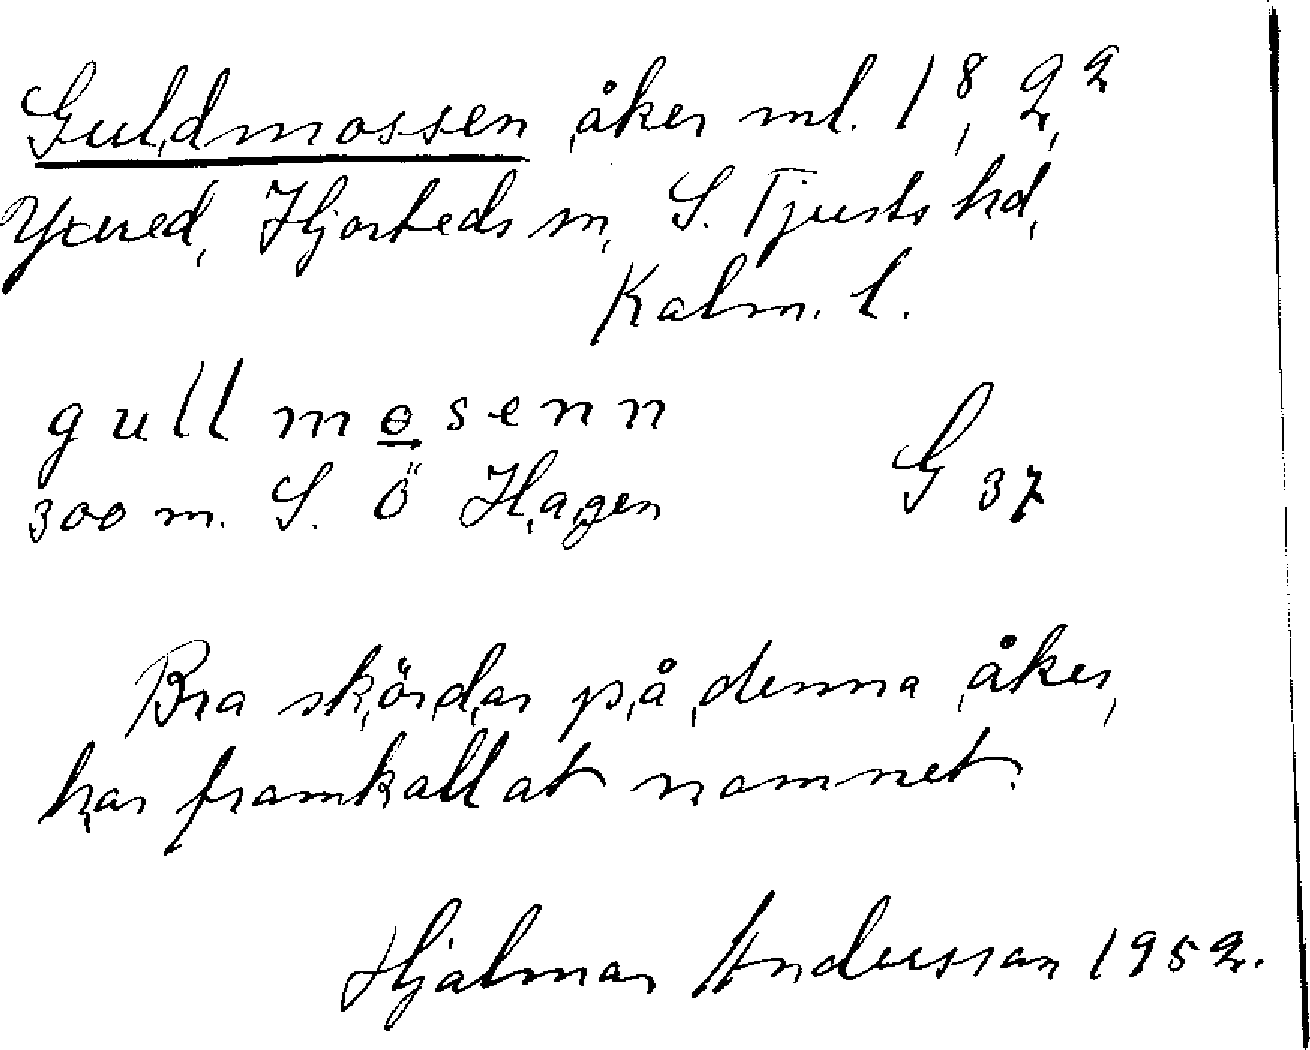 Guldmossen åker ml. 1⁸, 2,²
Yxered, Hjorteds sn, S. Tjusts hd,
Kalm. l.
gullmosenn
300 m. S. Ö Hagen G 37
Bra skördar på denna åker,
har framkallat namnet.
Hjalmar Andersson 1952.